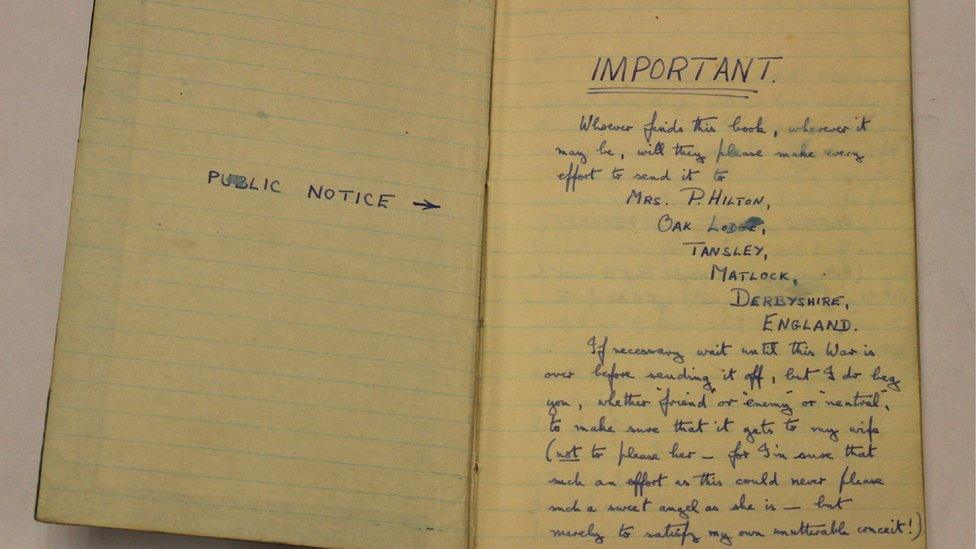 PUBLIC NOTICE →
IMPORTANT.
Whoever finds this book, wherever it
may be, will they please make every
effort to send it to
MRS. P. HILTON,
OAK LODGE,
TANSLEY,
MATLOCK,
DERBYSHIRE,
ENGLAND.
If necessary wait until this War is
over before sending it off, but I do beg
you, whether "friend" or "enemy" or "neutral",
to make sure that it gets to my wife
(not to please her – for I'm sure that
such an effort as this could never please
such a sweet angel as she is – but
merely to satisfy my own unutterable conceit!)